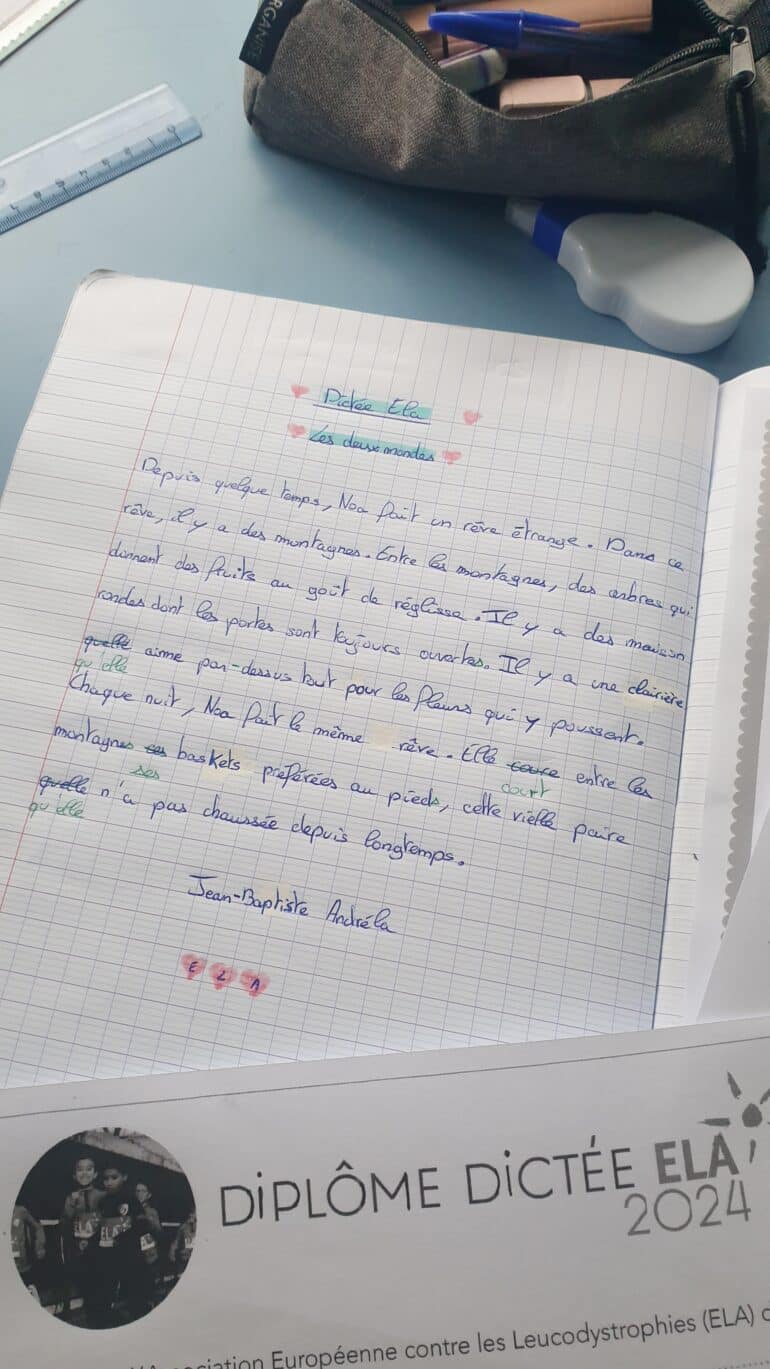 ORGANIS
Dictée Ela
Les deux mondes
Depuis quelque temps, Noa fait un rêve étrange. Dans ce
rêve, il y a des montagnes. Entre les montagnes, des arbres qui
donnent des fruits au goût de réglisse. Il y a des maison
rondes dont les portes sont toujours ouvertes. Il y a une clairière
quelle aime par-dessus tout pour les fleurs qui y poussent.
qu'elle
Chaque nuit, Noa fait le même rêve. Elle coure entre les
court
montagnes ces baskets préférées au pieds, cette vielle paire
ses
quelle n'a pas chaussée depuis longtemps.
qu'elle
Jean-Baptiste Andréla
E L A
DIPLÔME DICTÉE ELA
2024
Association Européenne contre les Leucodystrophies (ELA)